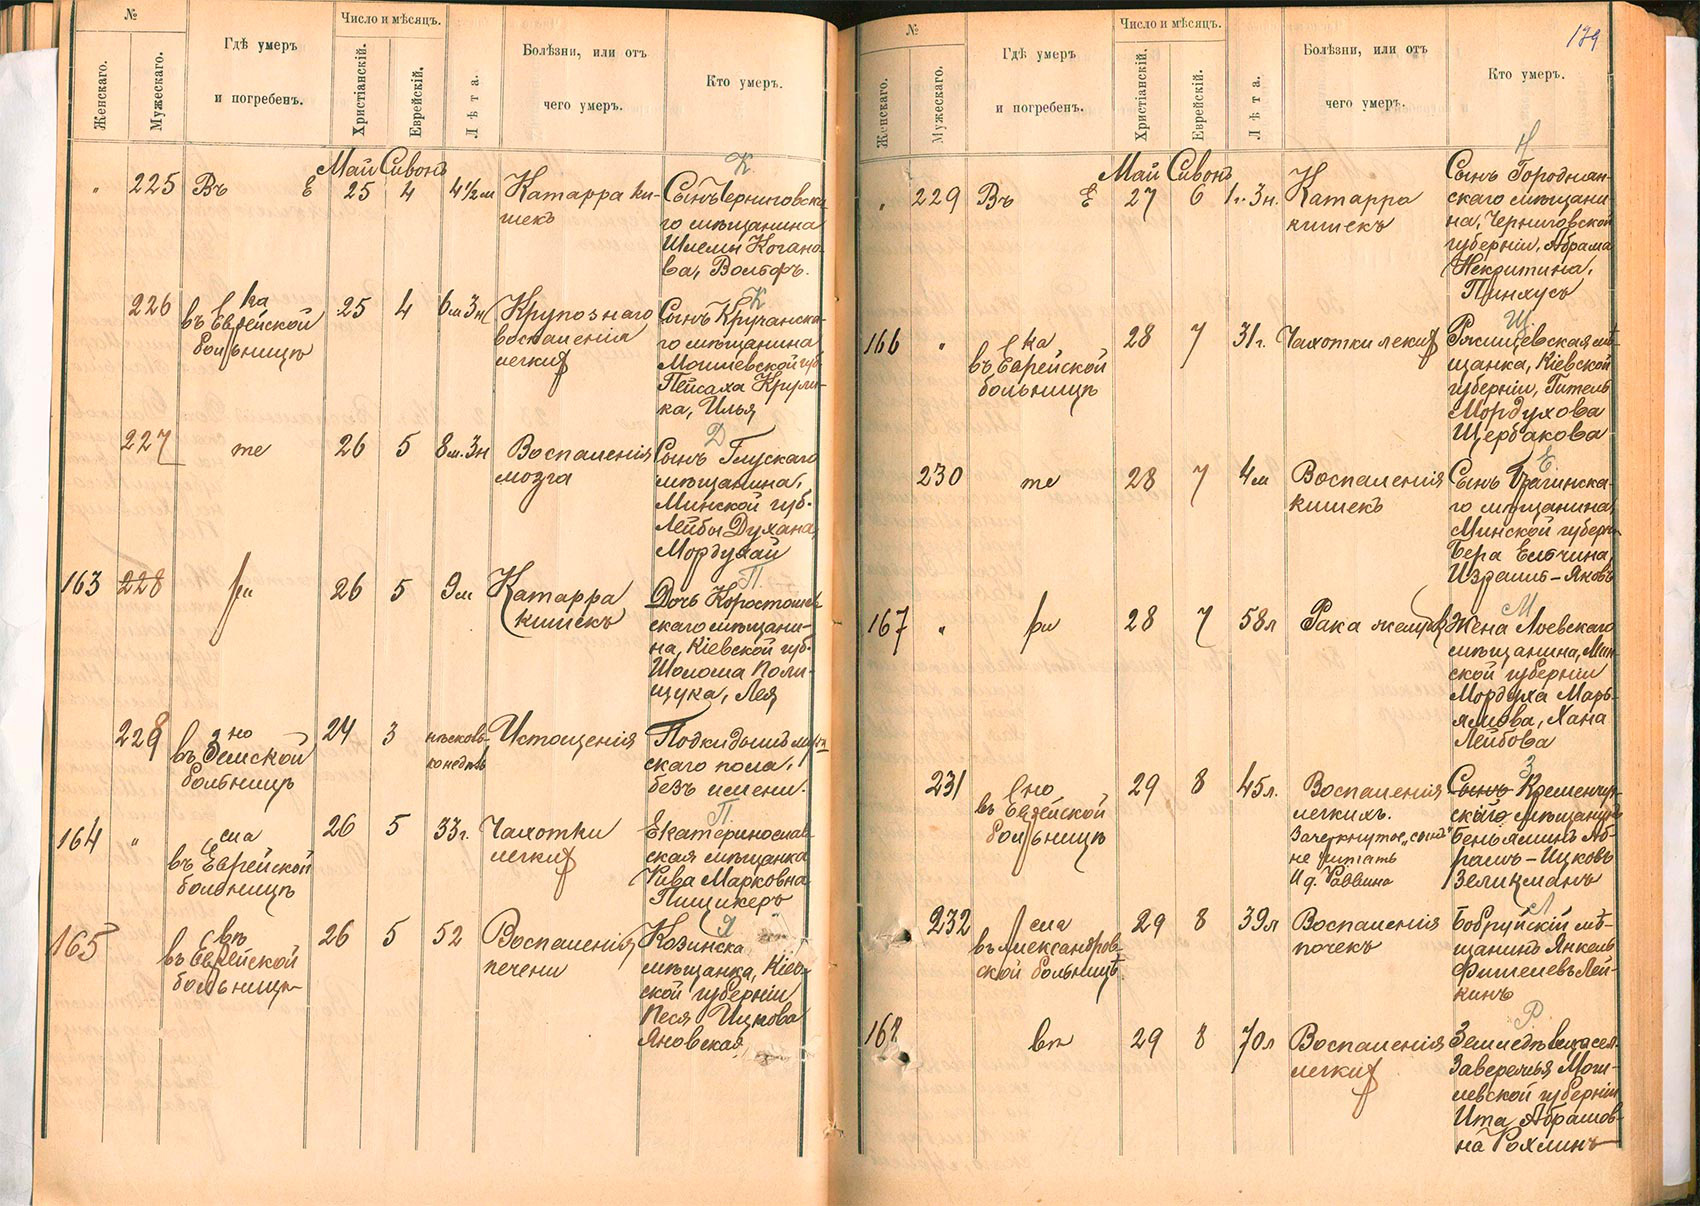 №
Женскаго.
Мужескаго.
Гдѣ умеръ
и погребенъ.
Число и мѣсяцъ.
Христіанскій.
Еврейскій.
Лѣта.
Болѣзни, или отъ
чего умеръ.
Кто умеръ.
Май Сивонъ
К
" 225 Въ Е 25 4 4½ м Катарра ки-
шекъ
Сынъ Черниговска
го мѣщанина
Шлемы Когано
ва, Вольфъ.
К
226 въ Еврейской
больницѣ
25 4 6 м 3 н Крупознаго
воспаленія
легких
Сынъ Кручанска-
го мѣщанина
Могилевской губ
Пейсаха Крупи-
ка, Илья
Д
227 те 26 5 8 м. 3 н Воспаленія
мозга
Сынъ Глускаго
мѣщанина,
Минской губ.
Лейбы Духана,
Мордухай
П.
163 228 26 5 9 м Катарра
кишекъ
Дочь Коростошев
скаго мѣщани-
на, Кіевской губ.
Шолома Поли-
щука, Лея
228 въ Земской
больницѣ
24 3 нѣсколь
ко недѣль
Истощенія
Подкидышъ муж
скаго пола,
безъ имени.
П.
164 " въ Еврейской
больницѣ
26 5 33 г. Чахотки
легких
Екатеринослав-
ская мѣщанка
Рива Марковна
Пищикеръ
165 въ Еврейской
больницѣ
26 5 52 Воспаленія
печени
Козинска
мѣщанка, Кіев-
ской губерніи
Песя Ицкова
Яновская
179
№
Женскаго.
Мужескаго.
Гдѣ умеръ
и погребенъ.
Число и мѣсяцъ.
Христіанскій.
Еврейскій.
Лѣта.
Болѣзни, или отъ
чего умеръ.
Кто умеръ.
Май Сивонъ
Н
" 229 Въ Е 27 6 1 г. 3 н. Катарра
кишекъ
Сынъ Городнян-
скаго мѣщани-
на, Черниговской
губерніи, Абрама
Некритина,
Пинхусъ
Щ
166 " въ Еврейской
больницѣ
28 7 31 г. Чахотки легких
Ржищевская мѣ-
щанка, Кіевской
губерніи, Гитель
Мордухова
Щербакова
Е.
230 те 28 7 4 м Воспаленія
кишекъ
Сынъ Брагинска-
го мѣщанина,
Минской губерн
Бера Ельчина,
Израиль-Яковъ
М
167 " 28 7 58 л Рака желудка
Жена Лоевскаго
мѣщанина, Мин-
ской губерніи
Мордуха Марь-
ямова, Хана
Лейбова
З
231 въ Еврейской
больницѣ
29 8 45 л. Воспаленія
легкихъ.
Зачеркнутое „сынъ"
не читать
И д. Раввина
Сынъ Кременчуг-
скаго мѣщанинъ
Беньяминъ Аб-
рамъ-Ицковъ
Зеликманъ
Л
232 въ Александров-
ской больницѣ.
29 8 39 л Воспаленія
почекъ
Бобруйскій мѣ-
щанинъ Янкель
Фишелевъ Лей-
кинъ
Р.
168 29 8 70 л Воспаленія
легких
Земледѣлица сел.
Завережья Моги-
левской губерніи
Ита Абрамов-
на Рохлинъ